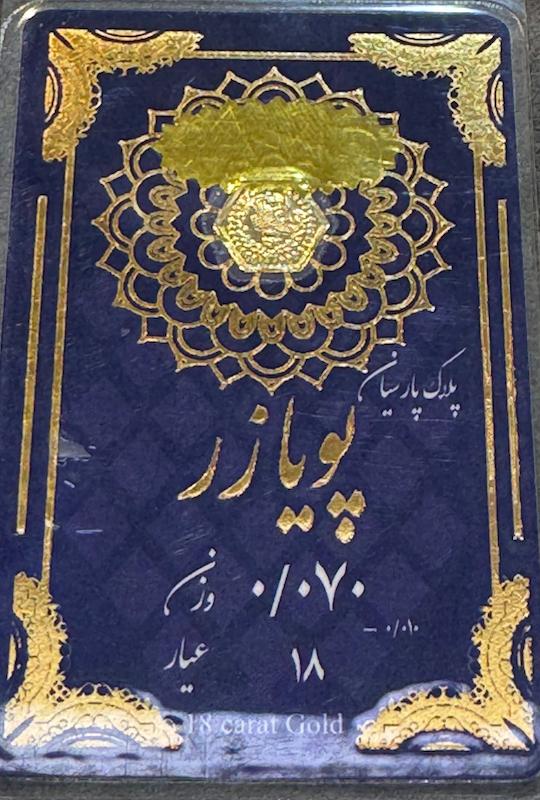 پلاک پارسیان
پویا زر
وزن ۰/۰۷۰
− ۰/۰۱۰
عیار ۱۸
18 carat Gold